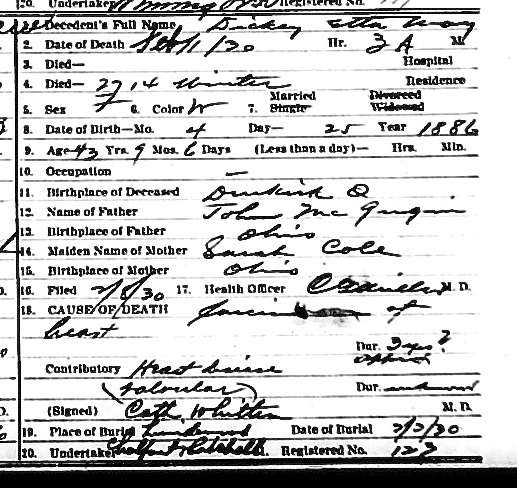 20. Undertaker Registered No.
Decedent's Full Name Dickey Etta May
2. Date of Death Feb/1/30 Hr. 3 A M.
3. Died— Hospital
4. Died— 2714 Winter Residence
5. Sex F 6. Color W 7. Married Single Divorced Widowed
8. Date of Birth—Mo. 4 Day— 25 Year 1886
9. Age 43 Yrs. 9 Mos. 6 Days (Less than a day)— Hrs. Min.
10. Occupation —
11. Birthplace of Deceased Dunkirk O
12. Name of Father John Mc Gugin
13. Birthplace of Father Ohio
14. Maiden Name of Mother Sarah Cole
15. Birthplace of Mother Ohio
16. Filed 2/8/30 17. Health Officer M. D.
18. CAUSE OF DEATH of
breast
Dur. 3 yrs?
Contributory Heart disease
(valvular) Dur. unknown
(Signed) Cath Whitten M. D.
19. Place of Burial Lindenwood Date of Burial 2/3/30
20. Undertaker Registered No. 123